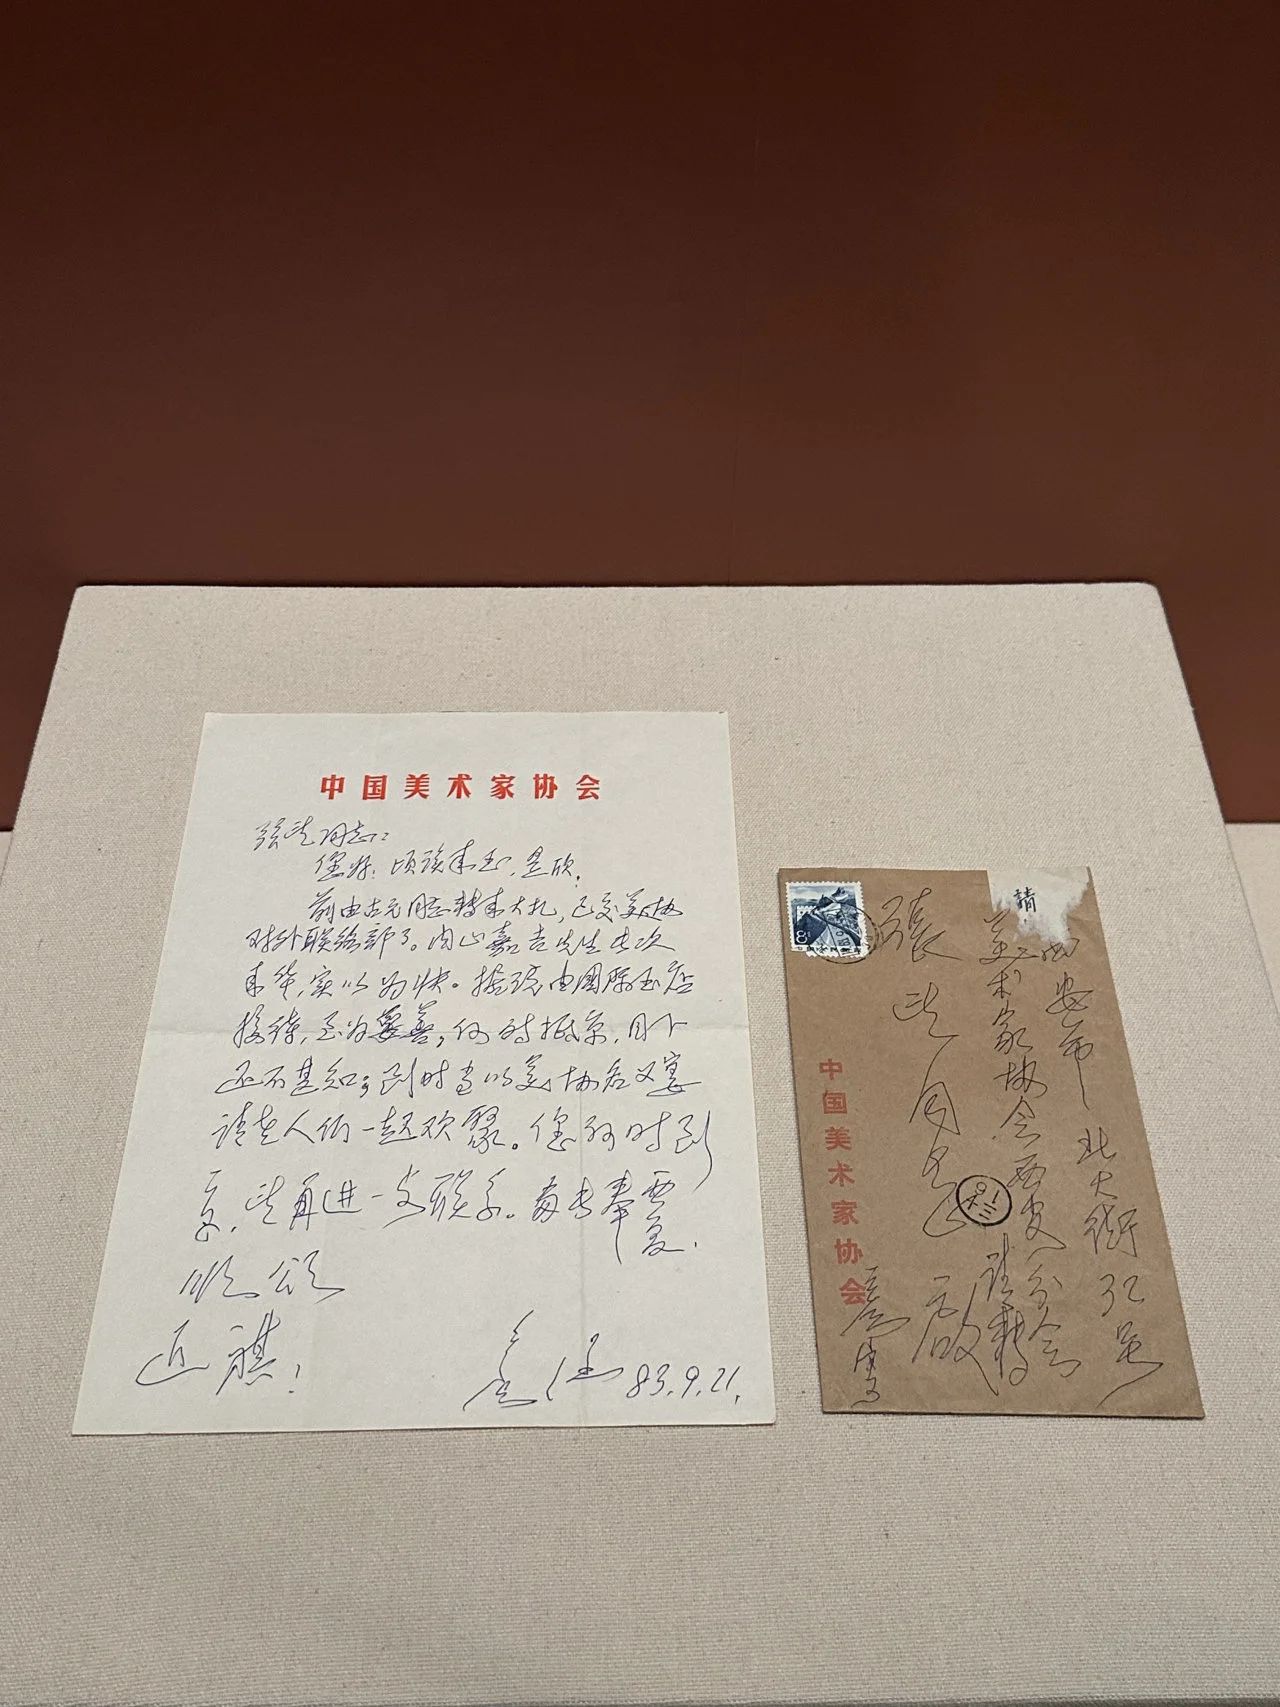 中国美术家协会
张望同志：
您好！顷读来书，是欣。
前由古元同志转来大札，已交美协
对外联络部了。内山嘉吉先生此次
来华，实以为快。据说由国际书店
接待，至为妥善，何时抵京，目下
还不甚知；到时当以美协名义宴
请老人们一起欢聚。您何时到
京，望再进一步联系。专奉覆。
顺颂
近祺！
83.9.21.
8
西安市 北大街 32号
美术家协会西安分会
请转
张望同志 启
中国美术家协会
請